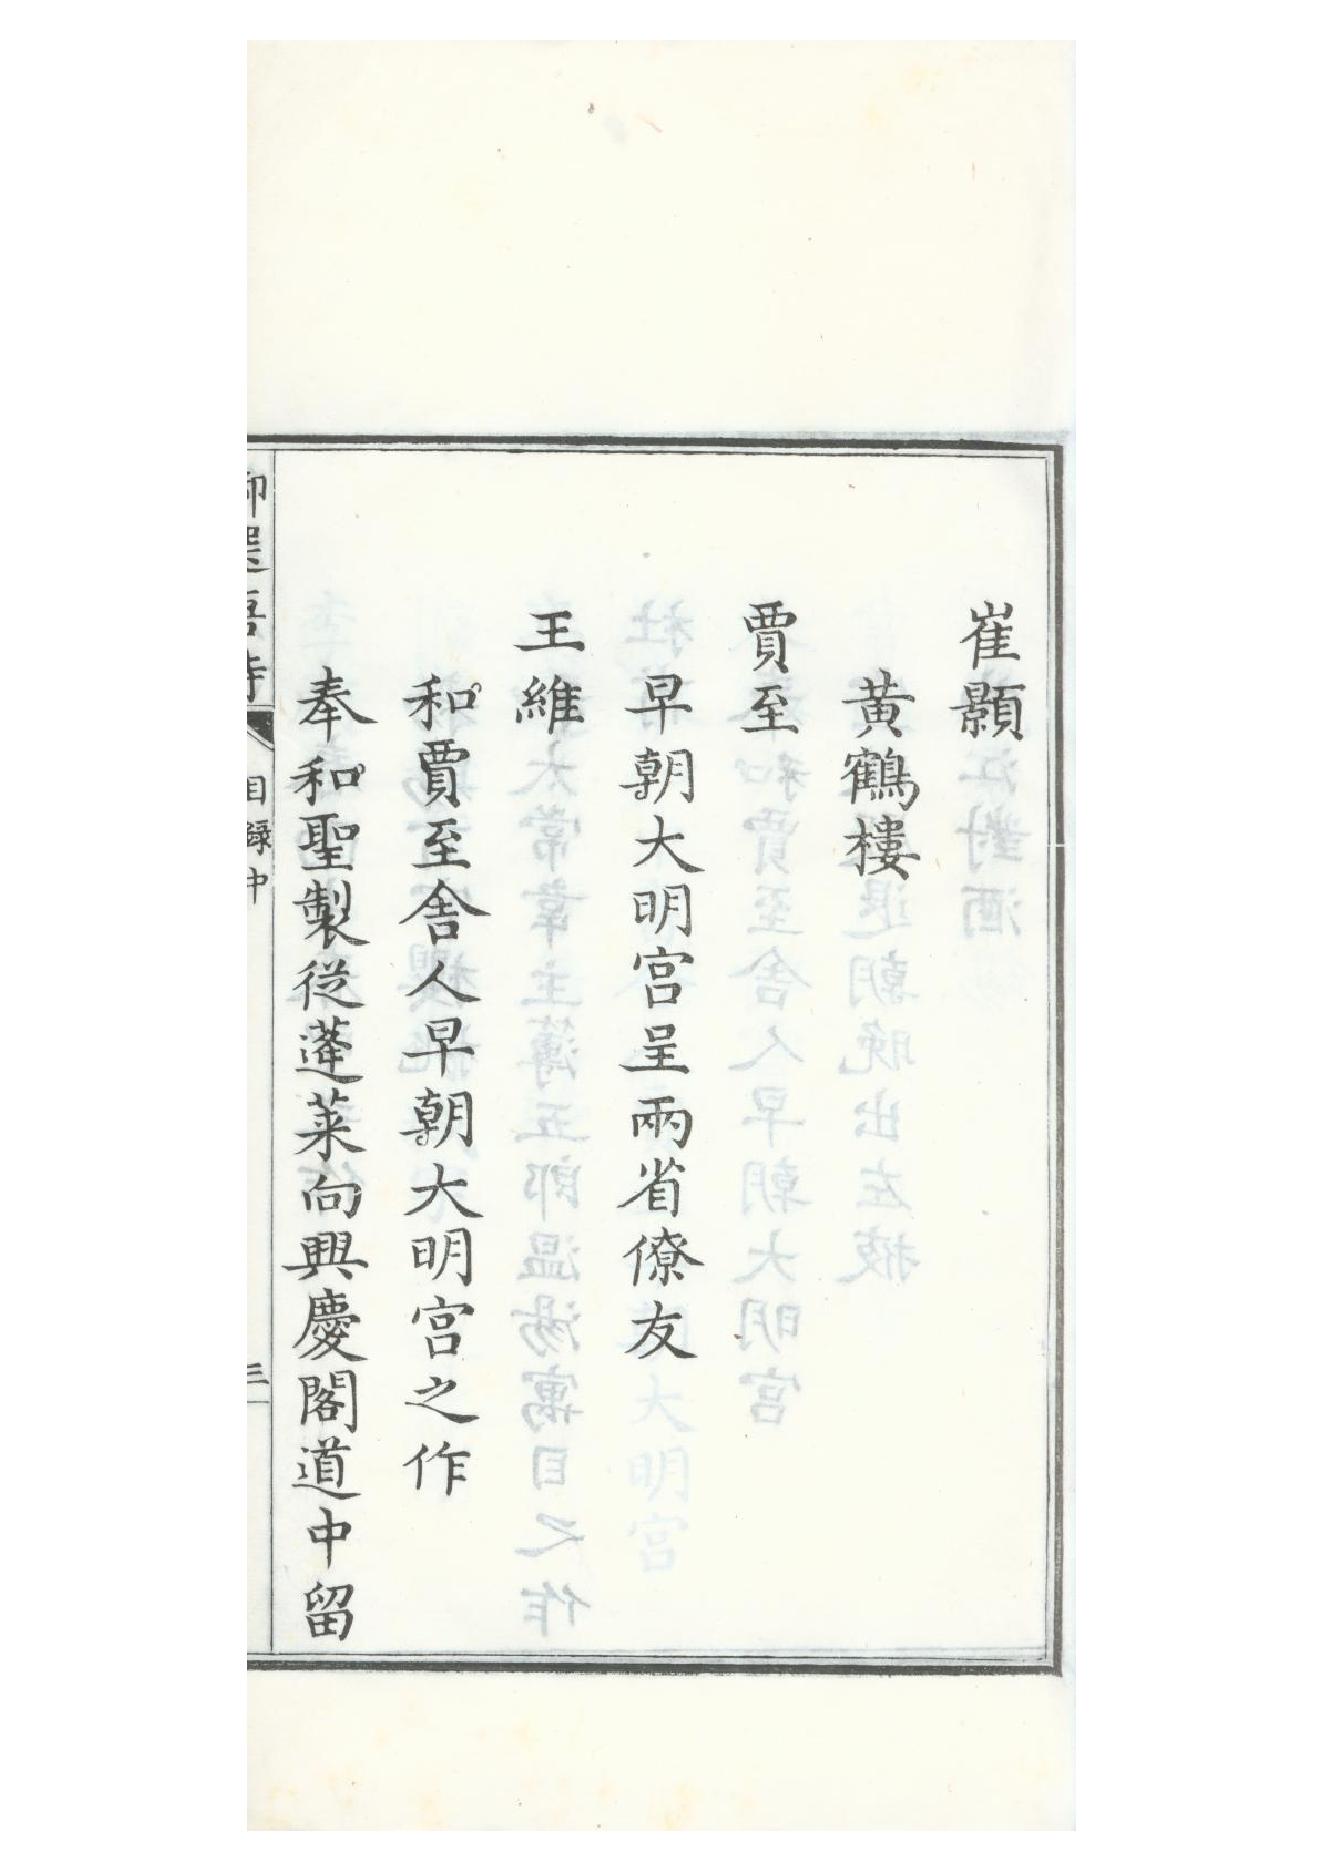 崔顥
黃鶴樓
賈至
早朝大明宮呈兩省僚友
王維
和賈至舍人早朝大明宮之作
奉和聖製從蓬萊向興慶閣道中留
目錄中
三